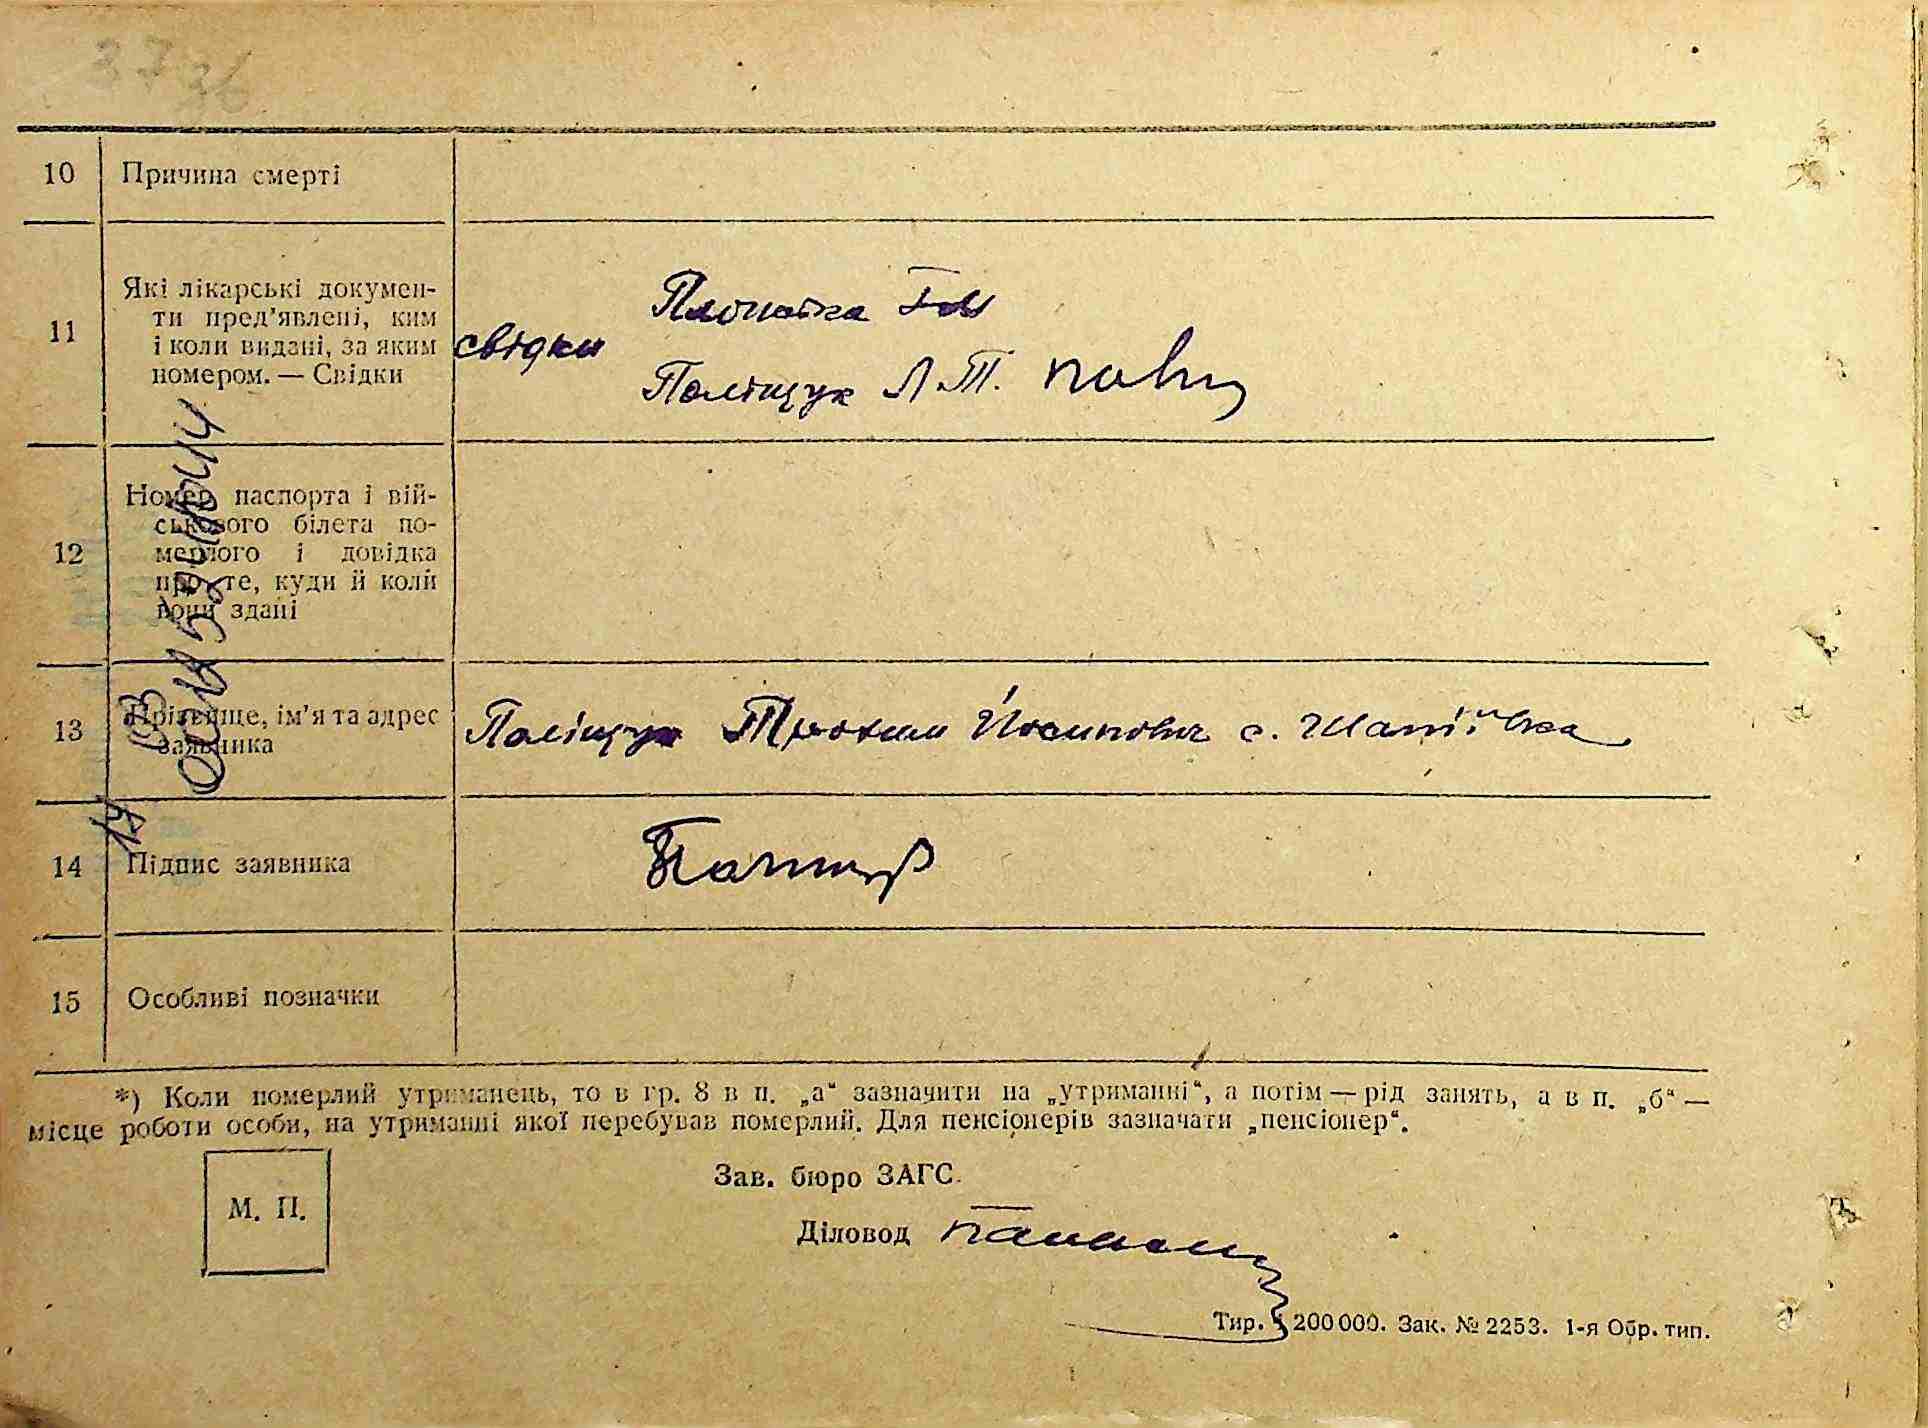 37 36
10 Причина смерті
11 Які лікарські докумен-
ти пред'явлені, ким
і коли видані, за яким
номером. — Свідки
свідки
Поліщук Л. Т.
12 Номер паспорта і вій-
ськового білета по-
мерлого і довідка
про те, куди й коли
вони здані
13 Прізвище, ім'я та адрес
заявника
Поліщук Трохим Йосипович с. Шапіївка
14 Підпис заявника
15 Особливі позначки
*) Коли померлий утриманець, то в гр. 8 в п. „а“ зазначити на „утриманні“, а потім — рід занять, а в п. „б“ —
місце роботи особи, на утриманні якої перебував померлий. Для пенсіонерів зазначати „пенсіонер“.
М. П.
Зав. бюро ЗАГС
Діловод
Тир. 200 000. Зак. № 2253. 1-я Обр. тип.